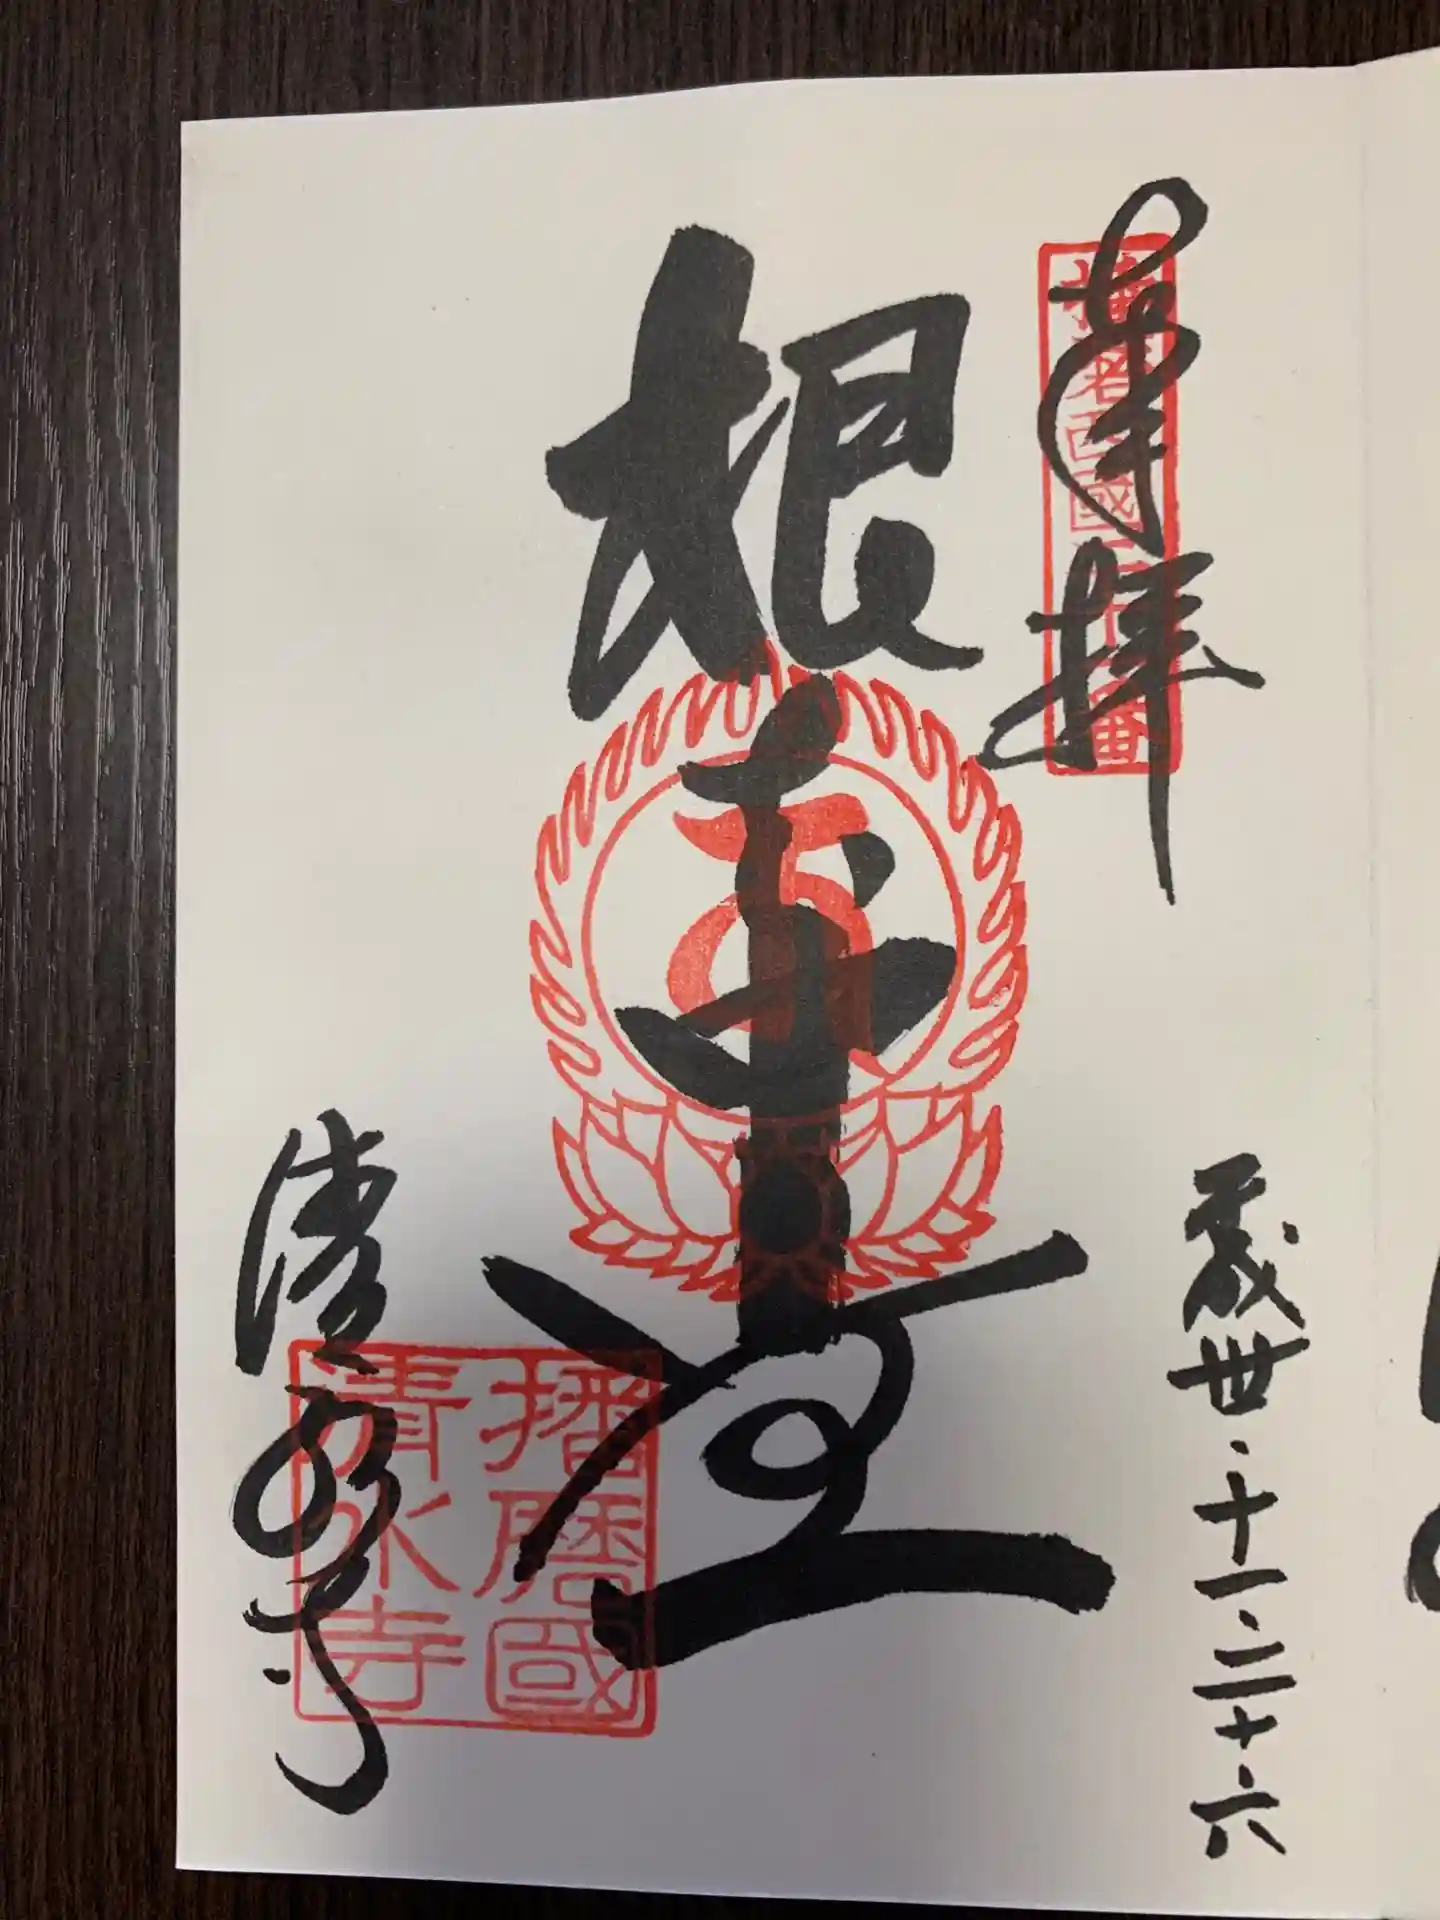 奉拝
西國
番
平成卅・十一・二十六
根本中堂
播磨國
清水寺
清水寺